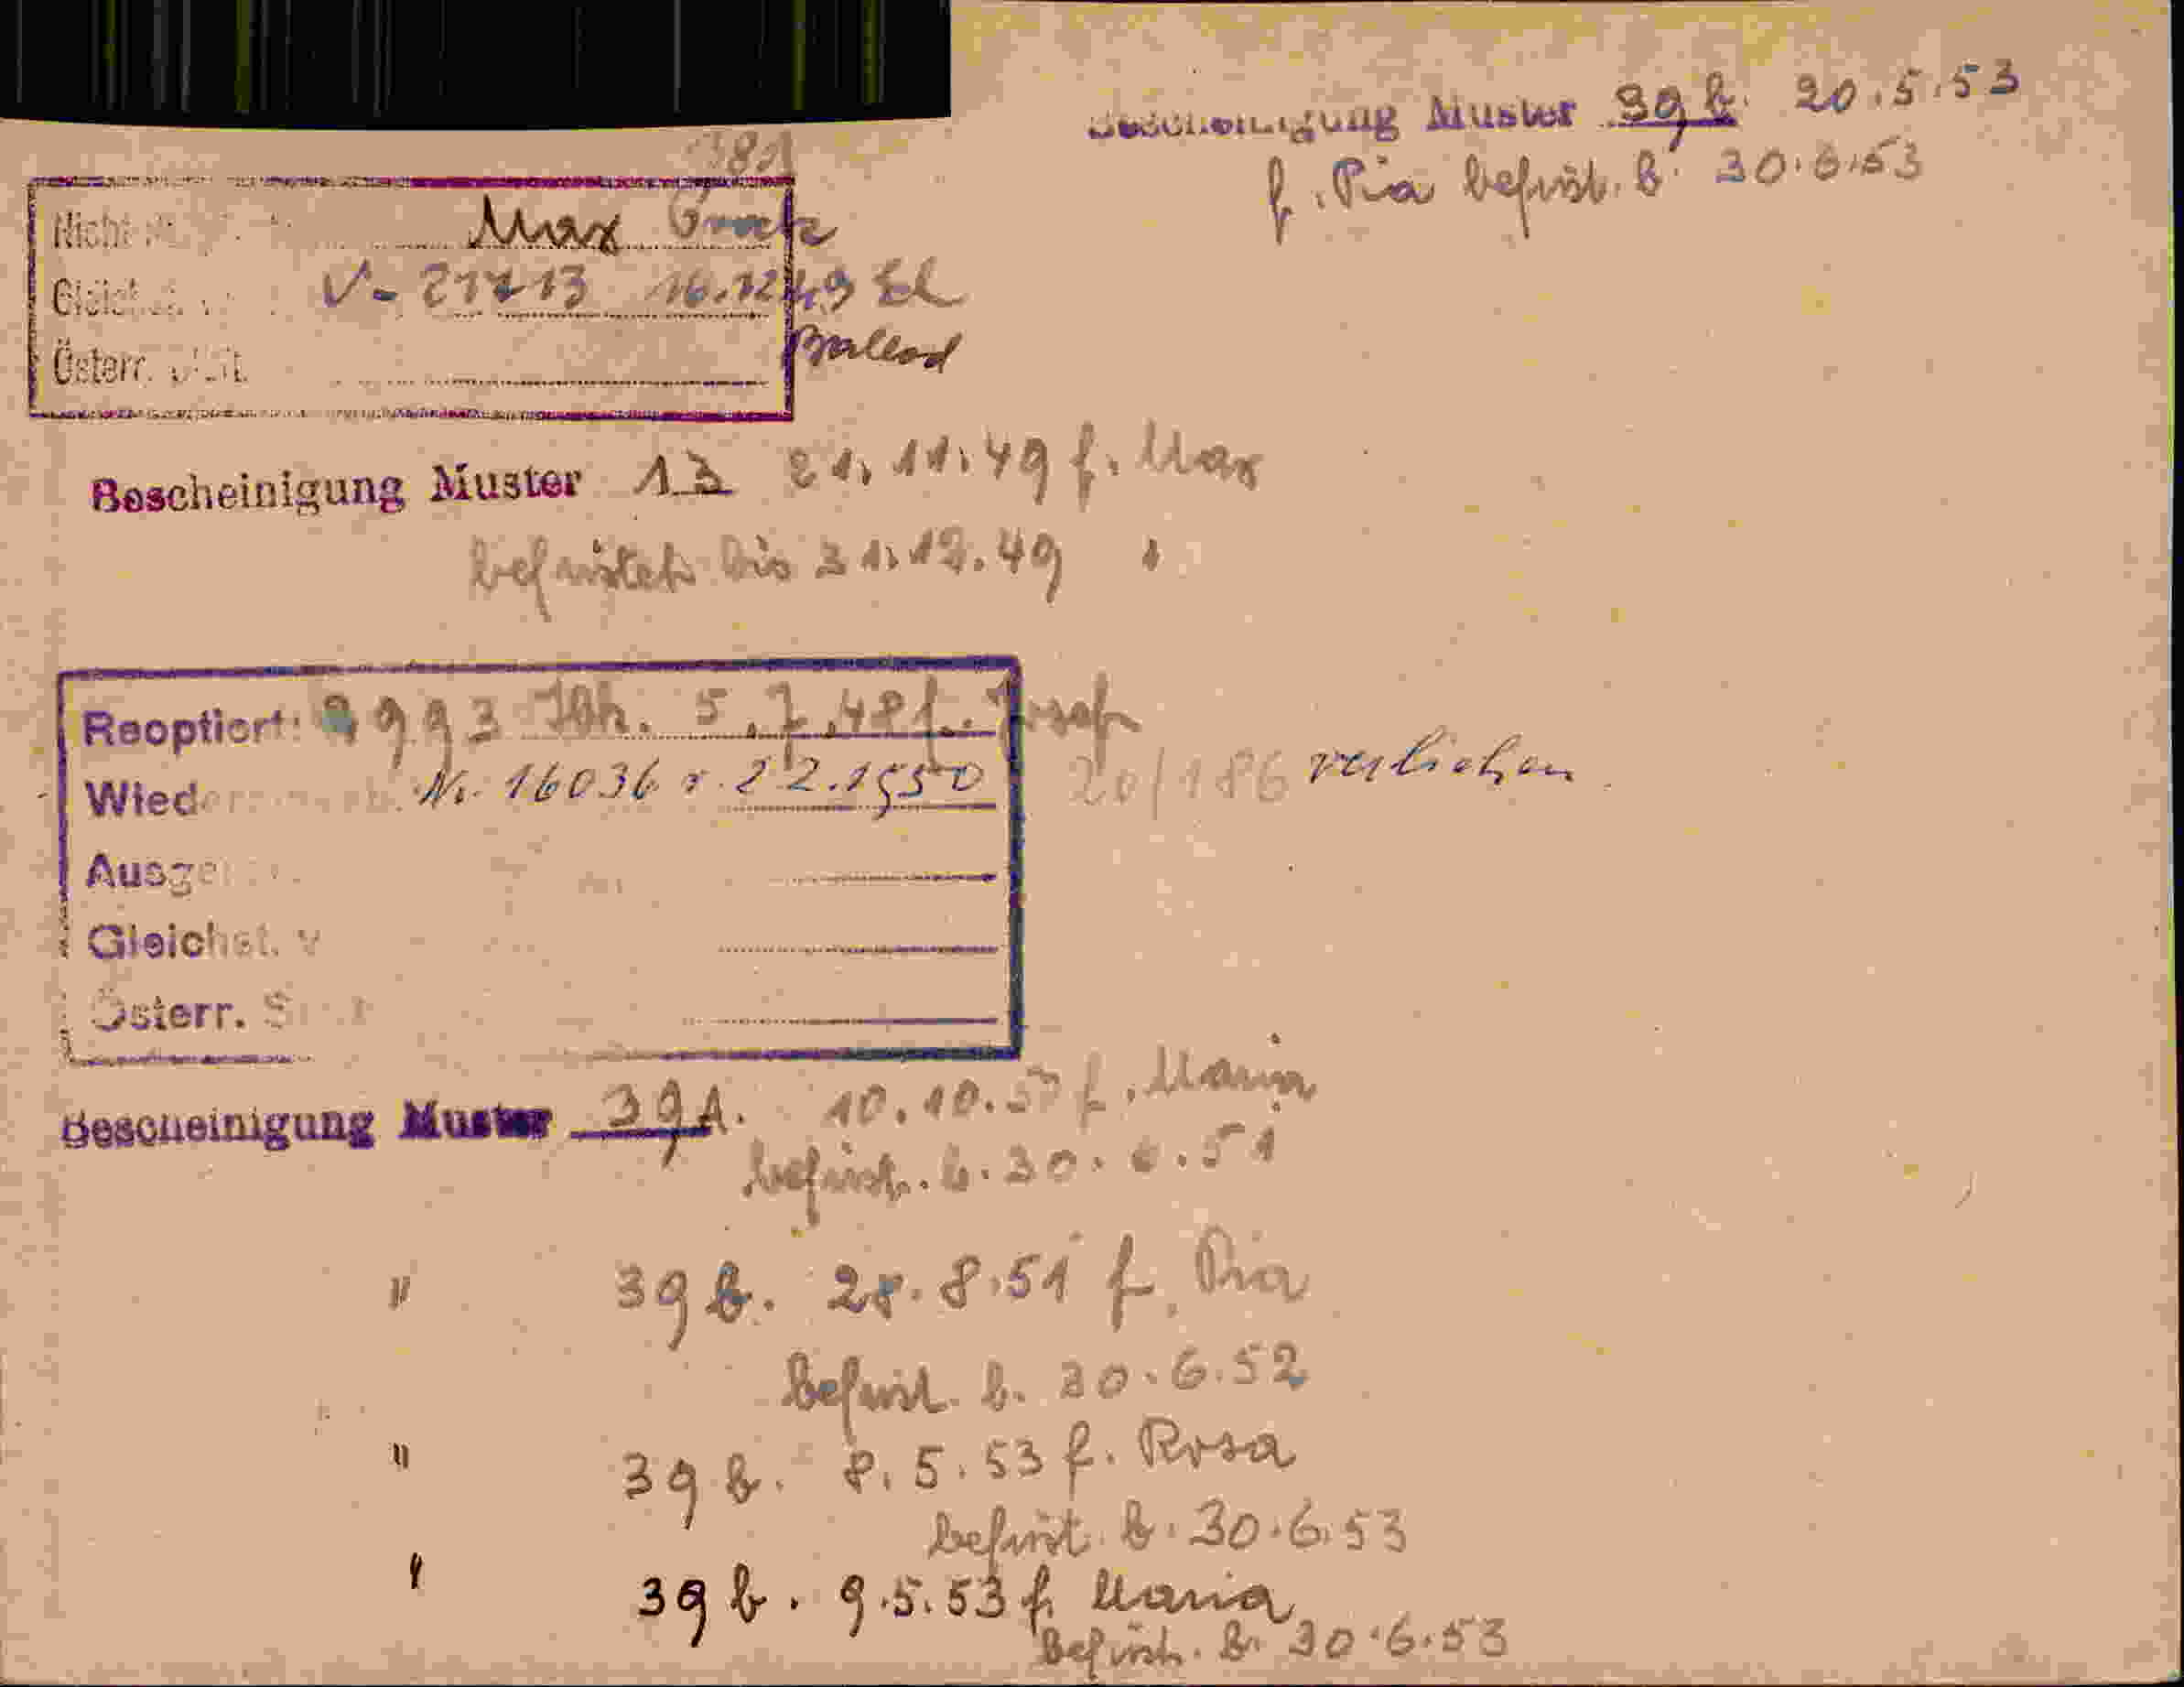 Bescheinigung Muster 39 b. 20.5.53
f. Pia befrist. b. 30.6.53
Max
Gleichst.
V - 16.12.49
Österr.
Bescheinigung Muster 13 21.11.49 f. Max
befristet bis 31.12.49
Reoptiert: 9993 5.7.48 f. Josef
Nr. 16036 v. 2 2.1950 20/186 verliehen
Gleichst. v
Österr.
Bescheinigung Muster 39 A. 10.10.50 f. Maria
befrist. b. 30. 6.51
" 39 b. 28.8.51 f. Pia
befrist. b. 30.6.52
" 39 b. 8.5.53 f. Rosa
befrist. b. 30.6.53
" 39 b. 9.5.53 f. Maria
befrist. b. 30.6.53